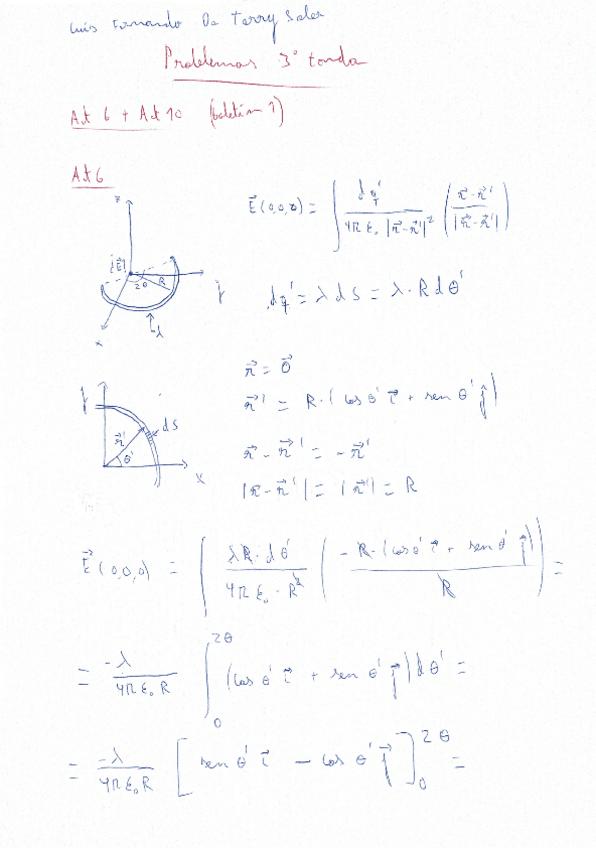 Luis Fernando De Terry Soler
Problemas 3º tanda
Act 6 + Act 10 (boletín 1)
Act 6
z
E⃗(0,0,0) = ∫ dq' / 4πε₀ |r⃗-r⃗'|² ( r⃗-r⃗' / |r⃗-r⃗'| )
¿E⃗?
2θ R
y
x
λ
dq' = λ dS = λ · R dθ'
r⃗ = 0⃗
y
r⃗' = R · ( cos θ' i⃗ + sen θ' j⃗ )
dS
r⃗'
θ'
x
r⃗ - r⃗' = - r⃗'
|r⃗ - r⃗'| = |r⃗'| = R
E⃗(0,0,0) = ∫ λR · dθ' / 4πε₀ · R² ( - R · (cos θ' i⃗ + sen θ' j⃗) / R ) =
= -λ / 4πε₀R ∫₀^2θ (cos θ' i⃗ + sen θ' j⃗) dθ' =
= -λ / 4πε₀R [ sen θ' i⃗ - cos θ' j⃗ ]₀^2θ =